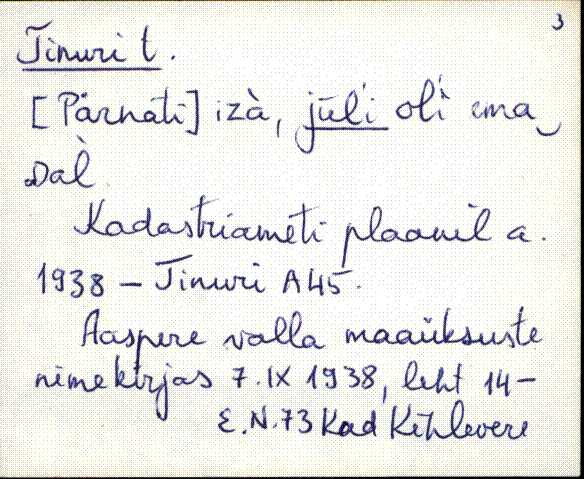 3
Tinuri t.
[Pärnäti] izà, jūĺi oĺì ema
dal̀.
Kadastriameti plaanil a.
1938 – Tinuri A45.
Aaspere valla maaüksuste
nimekirjas 7.IX 1938, leht 14–
E.N.73 Kad Kihlevere